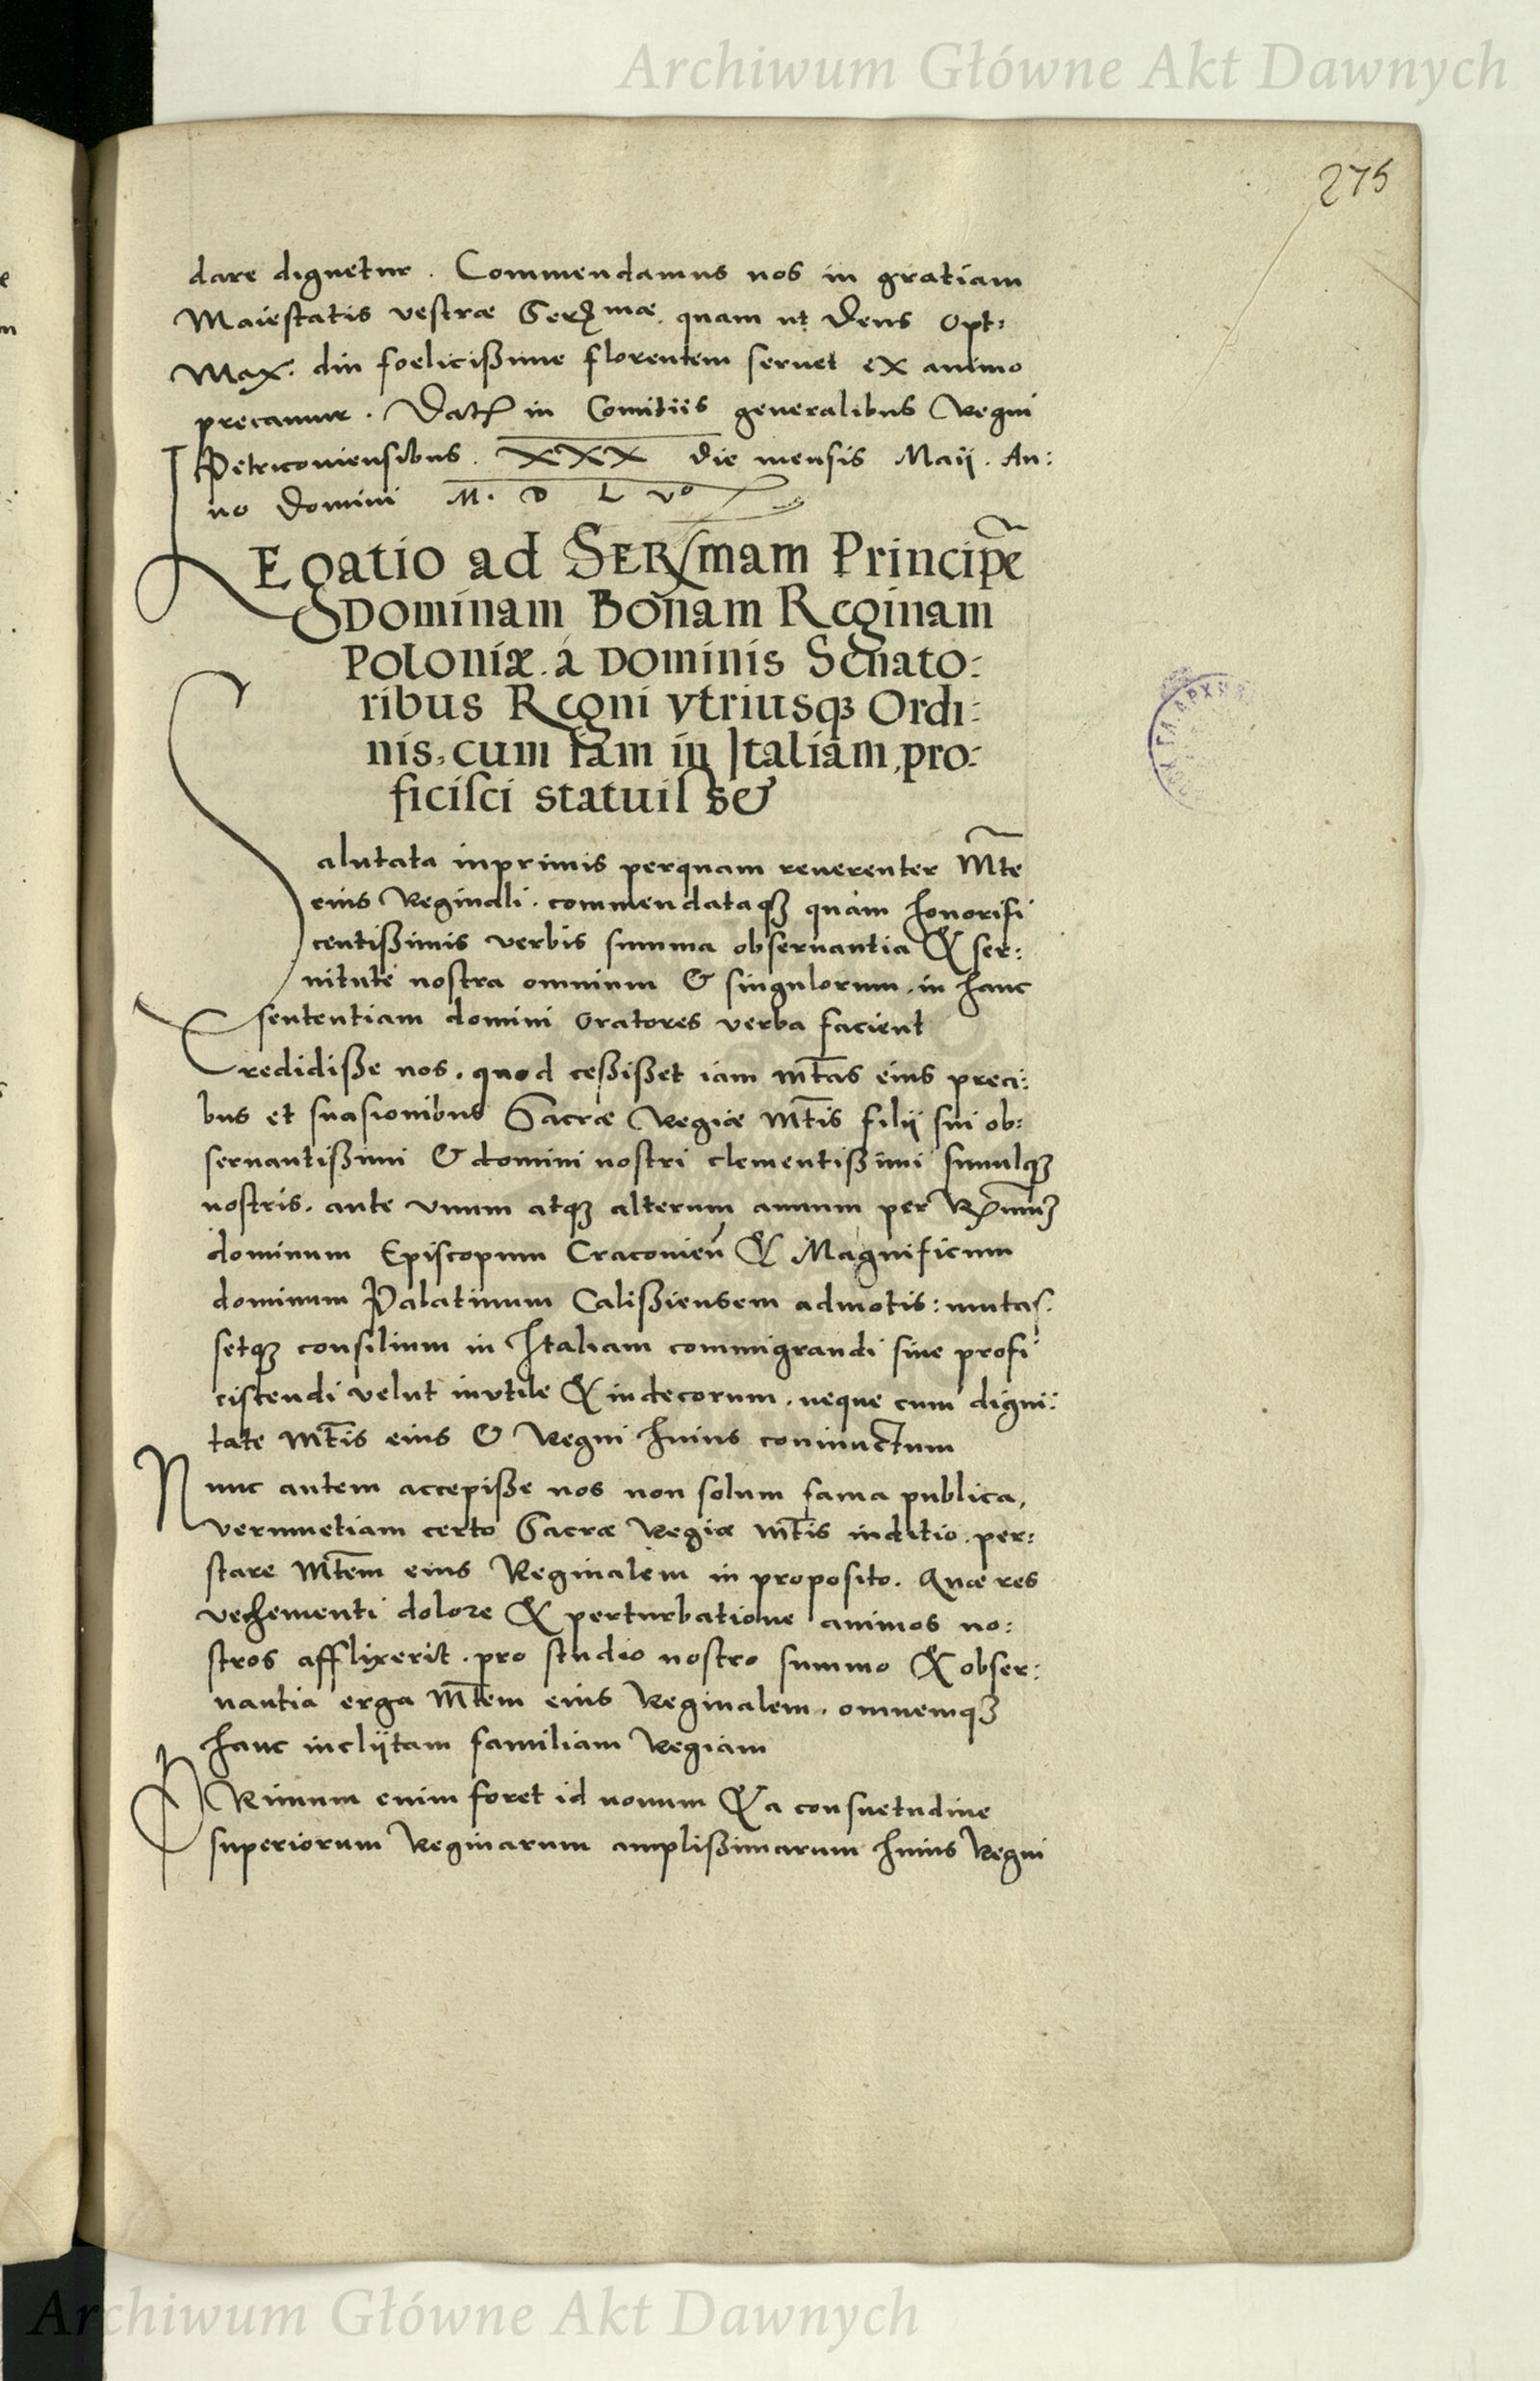 Archiwum Główne Akt Dawnych
275
dare dignetur. Commendamus nos in gratiam
Maiestatis vestræ Serꝫmæ. quam ut Deus Opt:
Max. diu foelicißime florentem seruet ex animo
precamur. Datꝫ in Comitiis generalibus Regni
Petricouiensibus. XXX die mensis Maij. An:
no Domini M. D L Vo
LEgatio ad SERmam Principẽ
Dominam Bonam Reginam
Poloniæ. à Dominis Senato:
ribus Regni vtriusqꝫ Ordi:
nis, cum iam in Italiam, pro:
ficisci statuisse
Salutata inprimis perquam reuerenter M̃te
eius Reginali. commendataqꝫ quàm honorifi
centißimis verbis summa obseruantia & ser:
uitute nostra omnium & singulorum. in hanc
sententiam domini oratores verba facient
Credidiße nos. quod ceßißet iam M̃tas eius preci:
bus et suasionibus Sacræ Regiæ M̃tis filij sui ob:
seruantißimi & domini nostri clementißimi simulqꝫ
nostris. ante vnum atqꝫ alterum annum per R̃muꝫ
dominum Episcopum Cracovieñ & Magnificum
dominum Palatinum Calißiensem admotis: mutas:
setqꝫ consilium in Italiam commigrandi siue profi
ciscendi velut inutile & indecorum. neque cum digni:
tate M̃tis eius & Regni huius coniunctum
Nunc autem accepiße nos non solum fama publica,
verumetiam certo Sacræ Regiæ M̃tis inditio. per:
stare M̃tem eius Reginalem in proposito. Quæ res
vehementi dolore & perturbatione animos no:
stros afflixerit. pro studio nostro summo & obser:
uantia erga M̃tem eius Reginalem. omnemqꝫ
hanc inclijtam familiam Regiam
PRimum enim foret id nouum & a consuetudine
superiorum Reginarum amplißimarum huius Regni
Archiwum Główne Akt Dawnych